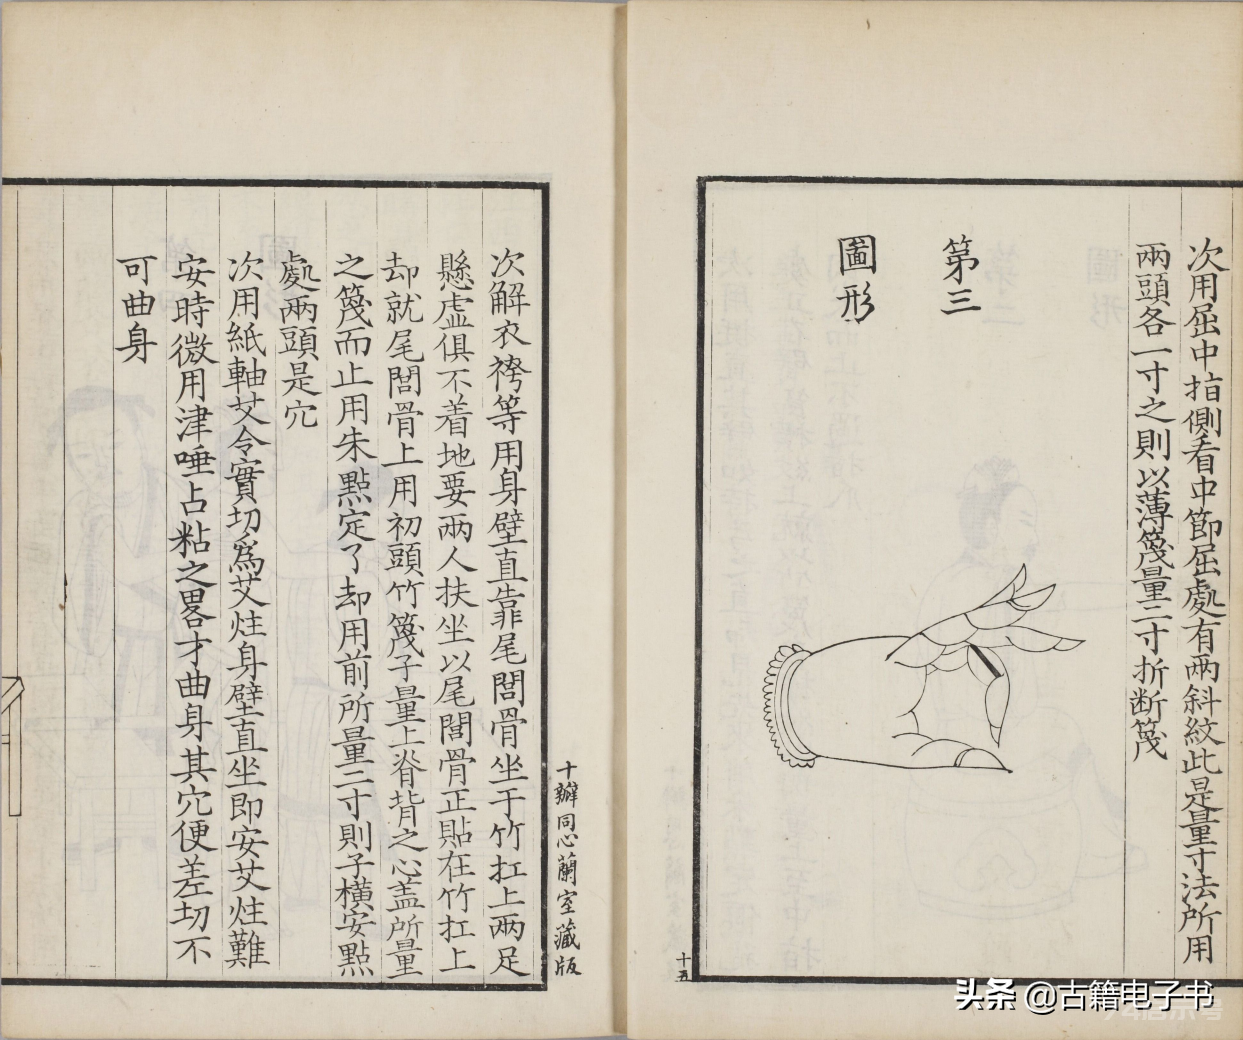 次用屈中指側看中節屈處有兩斜紋此是量寸法所用
兩頭各一寸之則以薄篾量二寸折断篾
第三
圖形
十五
次解衣袴等用身壁直靠尾閭骨坐于竹扛上兩足
懸虛俱不着地要兩人扶坐以尾閭骨正貼在竹扛上
却就尾閭骨上用初頭竹篾子量上脊背之心盖所量
之篾而止用朱點定了却用前所量二寸則子橫安點
處兩頭是穴
次用紙軸艾令實切為艾炷身壁直坐即安艾炷難
安時微用津唾占粘之畧才曲身其穴便差切不
可曲身
十瓣同心蘭室藏版
头条 @古籍电子书